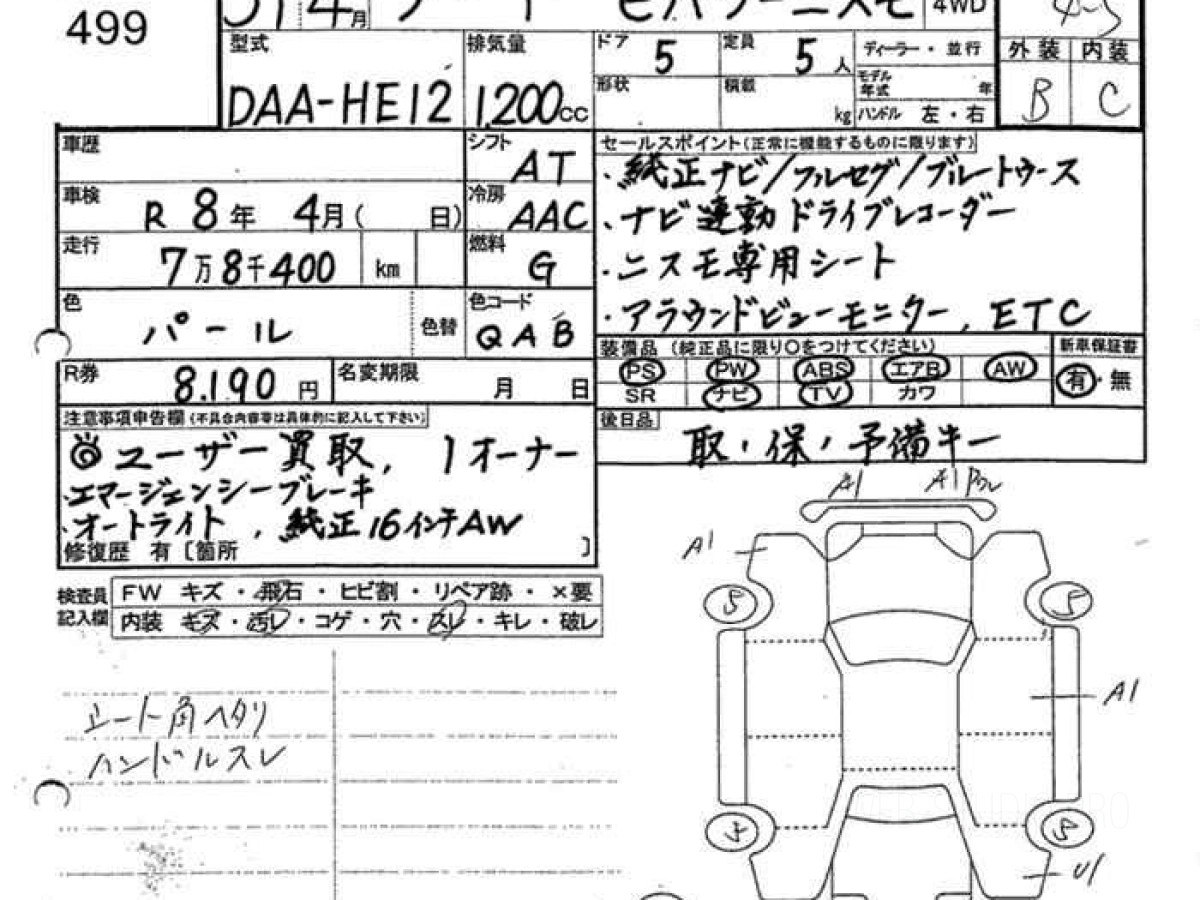 499
月
4WD
型式
DAA-HE12
排気量
1,200cc
ドア
5
形状
定員
5人
積載
kg
ディーラー・並行
モデル年式 年
ハンドル 左・右
外装 内装
B C
車歴
車検
R 8年 4月( 日)
走行
7万8千400 km
色
パール
色替
シフト
AT
冷房
AAC
燃料
G
色コード
QAB
セールスポイント(正常に機能するものに限ります)
・純正ナビ/フルセグ/ブルートゥース
・ナビ連動ドライブレコーダー
・ニスモ専用シート
・アラウンドビューモニター、ETC
R券
8.190円
名変期限
月 日
装備品 (純正品に限り〇をつけてください)
PS PW ABS エアB AW
SR ナビ TV カワ
新車保証書
有・無
後日品
取・保・予備キー
注意事項申告欄(不具合内容等は具体的に記入して下さい)
◎ユーザー買取、1オーナー
・エマージェンシーブレーキ
・オートライト、純正16インチAW
修復歴 有〔箇所 〕
検査員記入欄
FW キズ・飛石・ヒビ割・リペア跡・×要
内装 キズ・汚レ・コゲ・穴・スレ・キレ・破レ
シート角ヘタリ
ハンドルスレ
A1
A1
A1
5
5
A1
5
5
U1